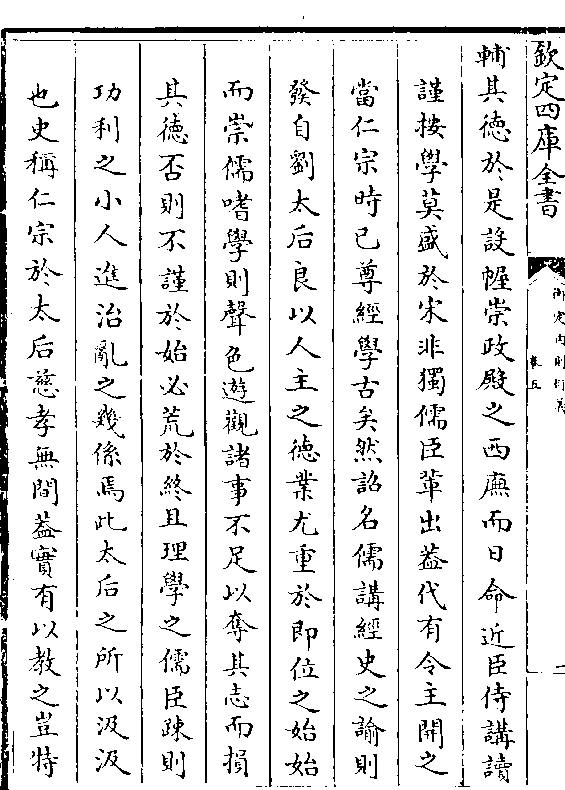 欽定四庫全書
御定内則衍義
卷五
二
輔其德於是設幄崇政殿之西廡而日命近臣侍講讀
謹按學莫盛於宋非獨儒臣輩出葢代有令主開之
當仁宗時已尊經學古矣然詔名儒講經史之諭則
發自劉太后良以人主之德業尤重於即位之始始
而崇儒嗜學則聲色遊觀諸事不足以奪其志而損
其德否則不謹於始必荒於終且理學之儒臣疎則
功利之小人進治亂之幾係焉此太后之所以汲汲
也史稱仁宗於太后慈孝無間葢實有以教之豈特